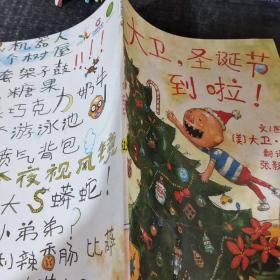 机器人
个树屋
套架子鼓!!!!
糖果
巧克力奶牛
游泳池
喷气背包
夜视风镜
大S蟒蛇!
小弟弟?
制辣香肠比萨
大卫,圣诞节
到啦!
文/图
(美)大卫·
翻译
张